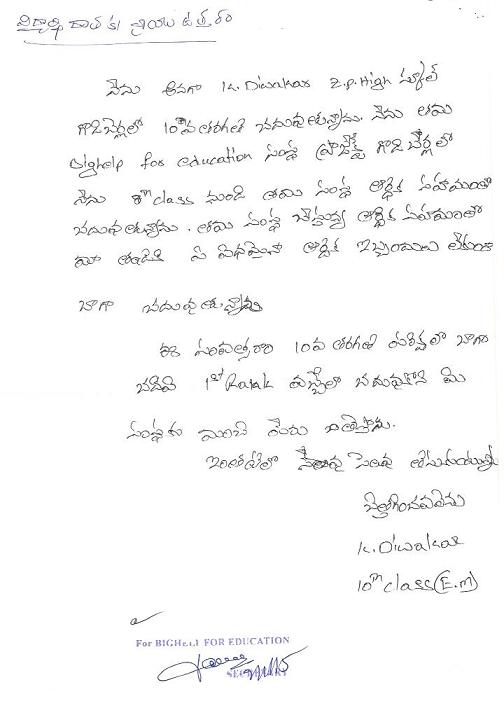 విద్యార్థి దాతకు వ్రాయు ఉత్తరం
నేను అనగా K. Diwakar Z.P. High స్కూల్
గొటిబేర్లలో 10వ తరగతి చదువుతున్నాను. నేను తమ
Bighelp for education సంస్థ ప్రాజెక్ట్ గొటిబేర్లలో
నేను 8th class నుండి తమ సంస్థ ఆర్థిక సహాయంతో
చదువుతున్నాను. తమ సంస్థ చేస్తున్న ఆర్థిక సహాయంతో
మా తండ్రికి ఏ విధమైన ఆర్థిక ఇబ్బందులు లేకుండా
బాగా చదువుతున్నాను
ఈ సంవత్సరం 10వ తరగతి పరీక్షలో బాగా
చదివి 1st Rank వచ్చేలా చదువుకొని మీ
సంస్థకు మంచి పేరు తెస్తాను.
ఇంతటితో సెలవు తీసుకుంటున్న
K. Diwakar
10th class (E.M)
For BIGHELP FOR EDUCATION
SECRETARY